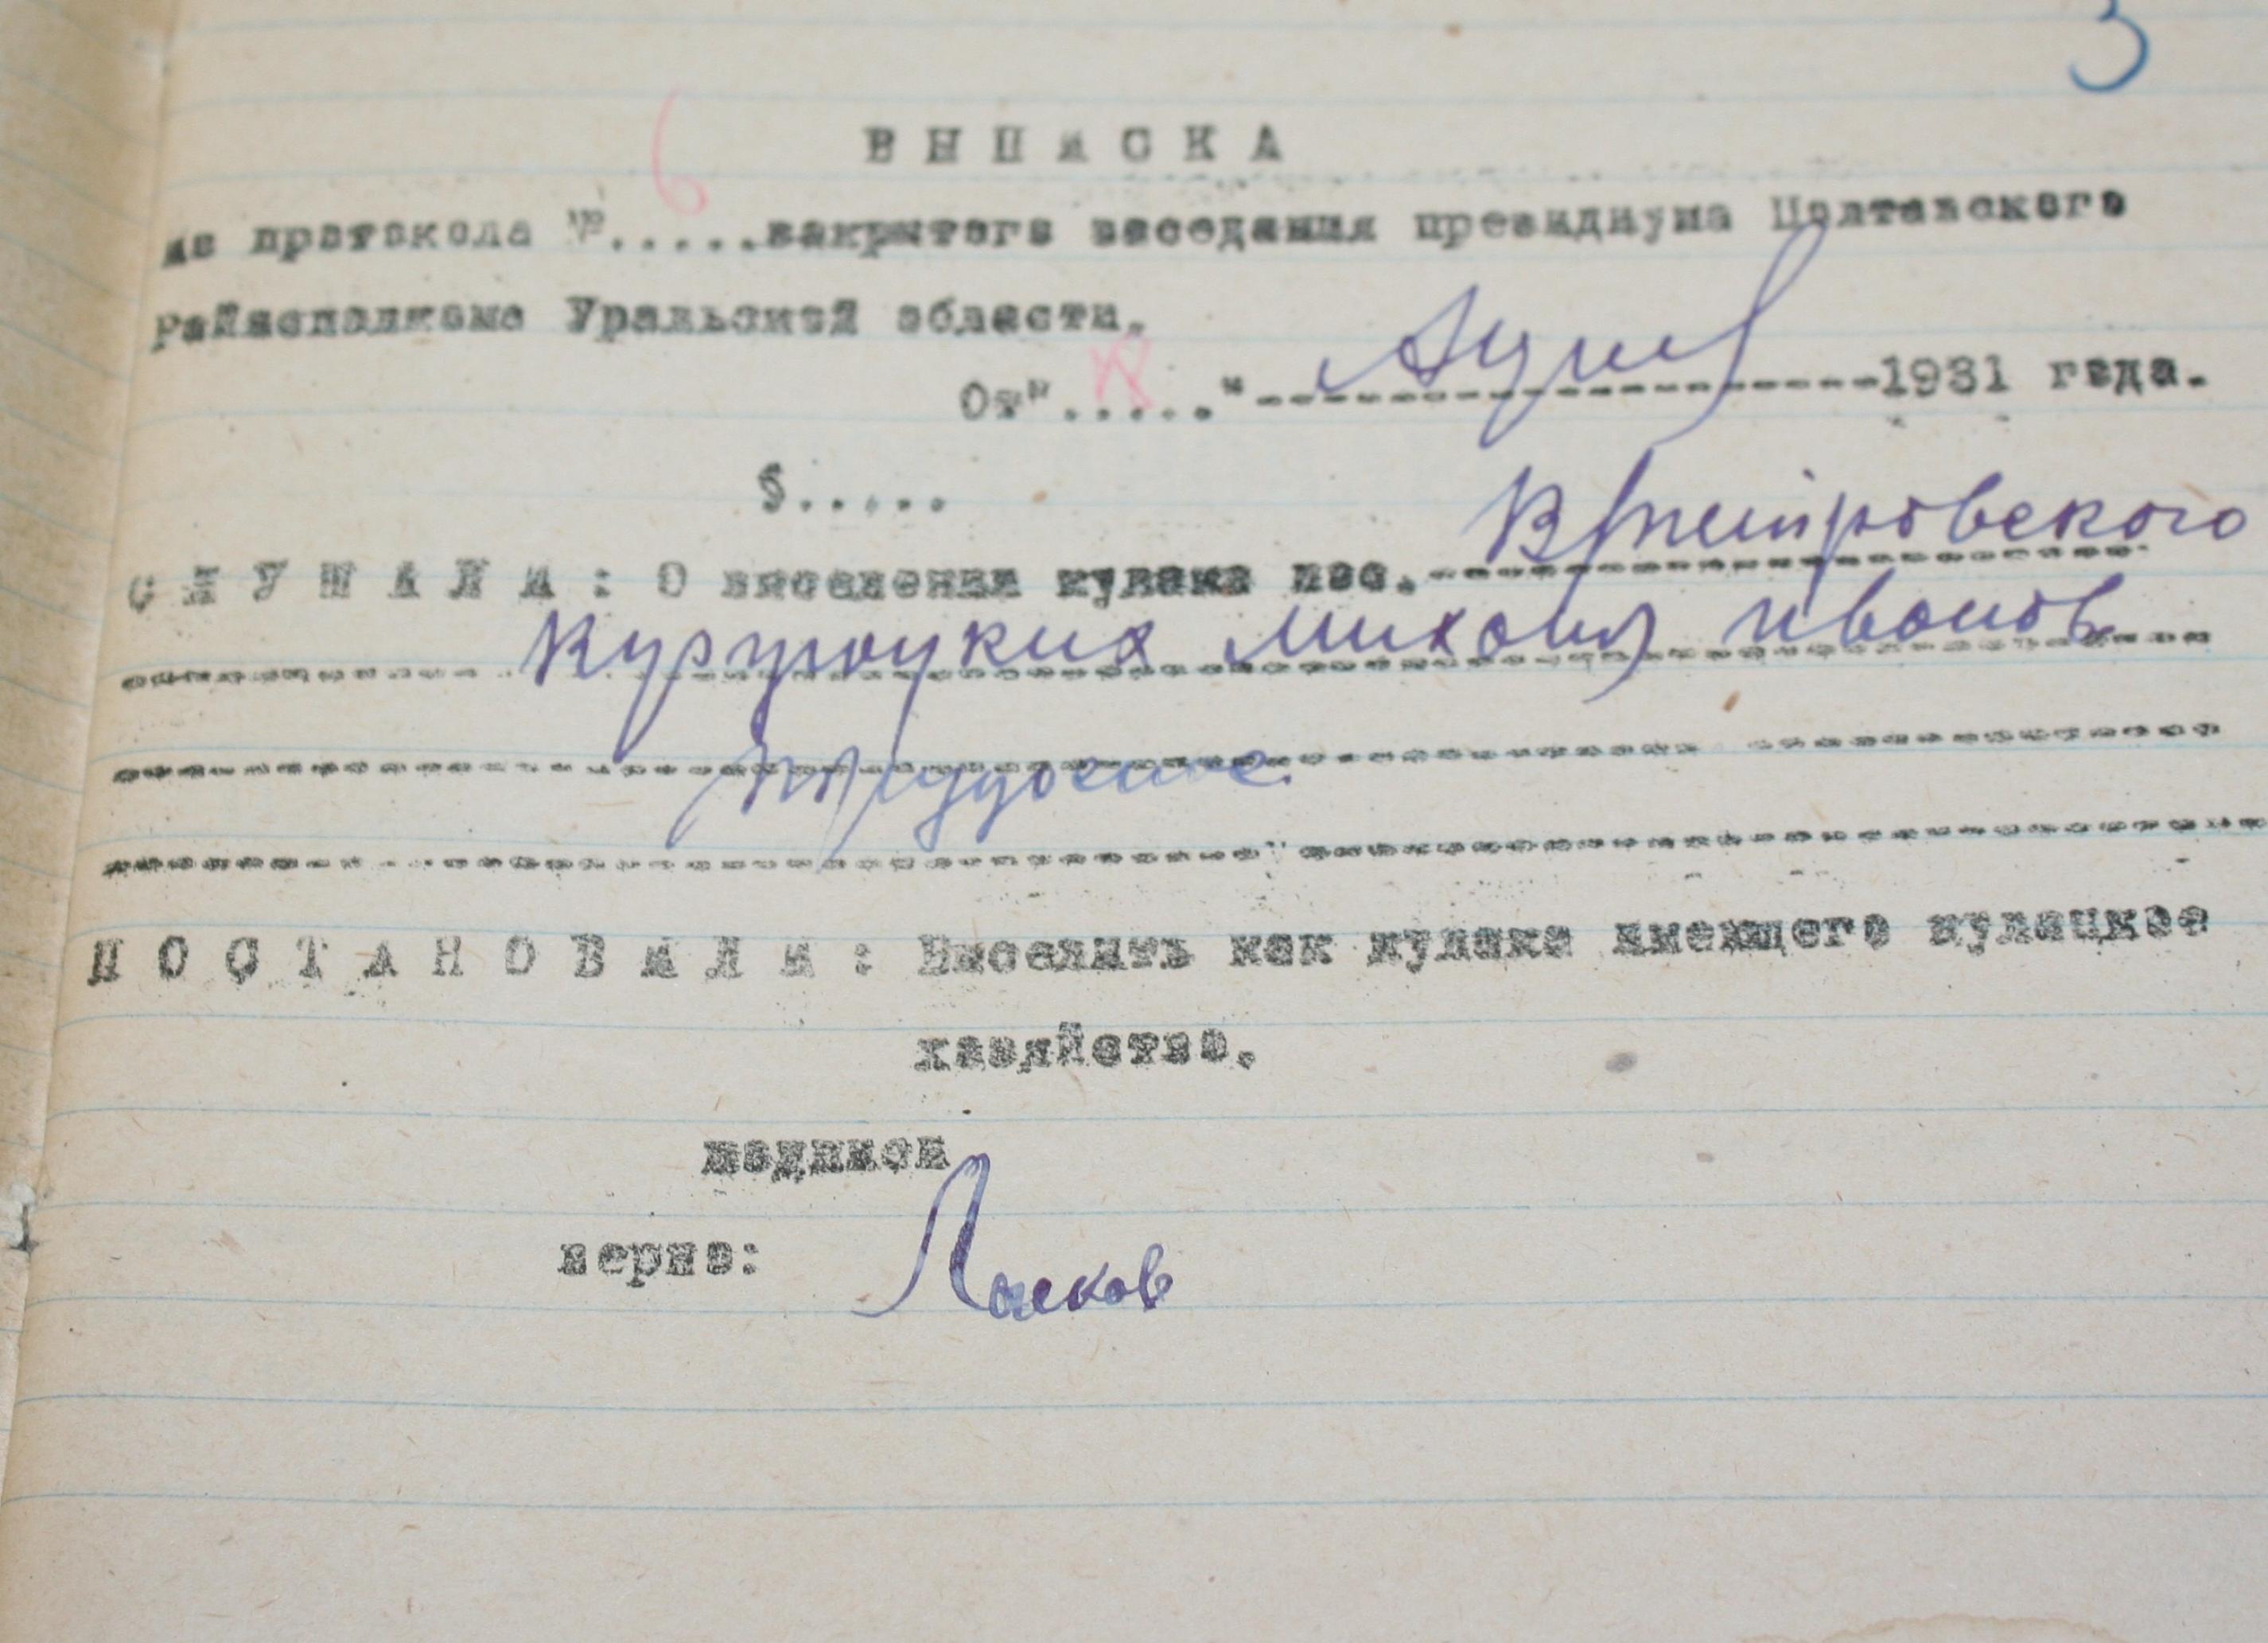 3
ВЫПИСКА
из протокола № 6 закрытого заседания президиума Полтавского
Райисполкома Уральской области.
От " 18 " 1931 года.
§.....
СЛУШАЛИ: О выселении кулака пос. В/Петровского
Михаил Иванов
ПОСТАНОВИЛИ: Выселить как кулака имеющего кулацкое
хозяйство.
подписи
верно: Лысков